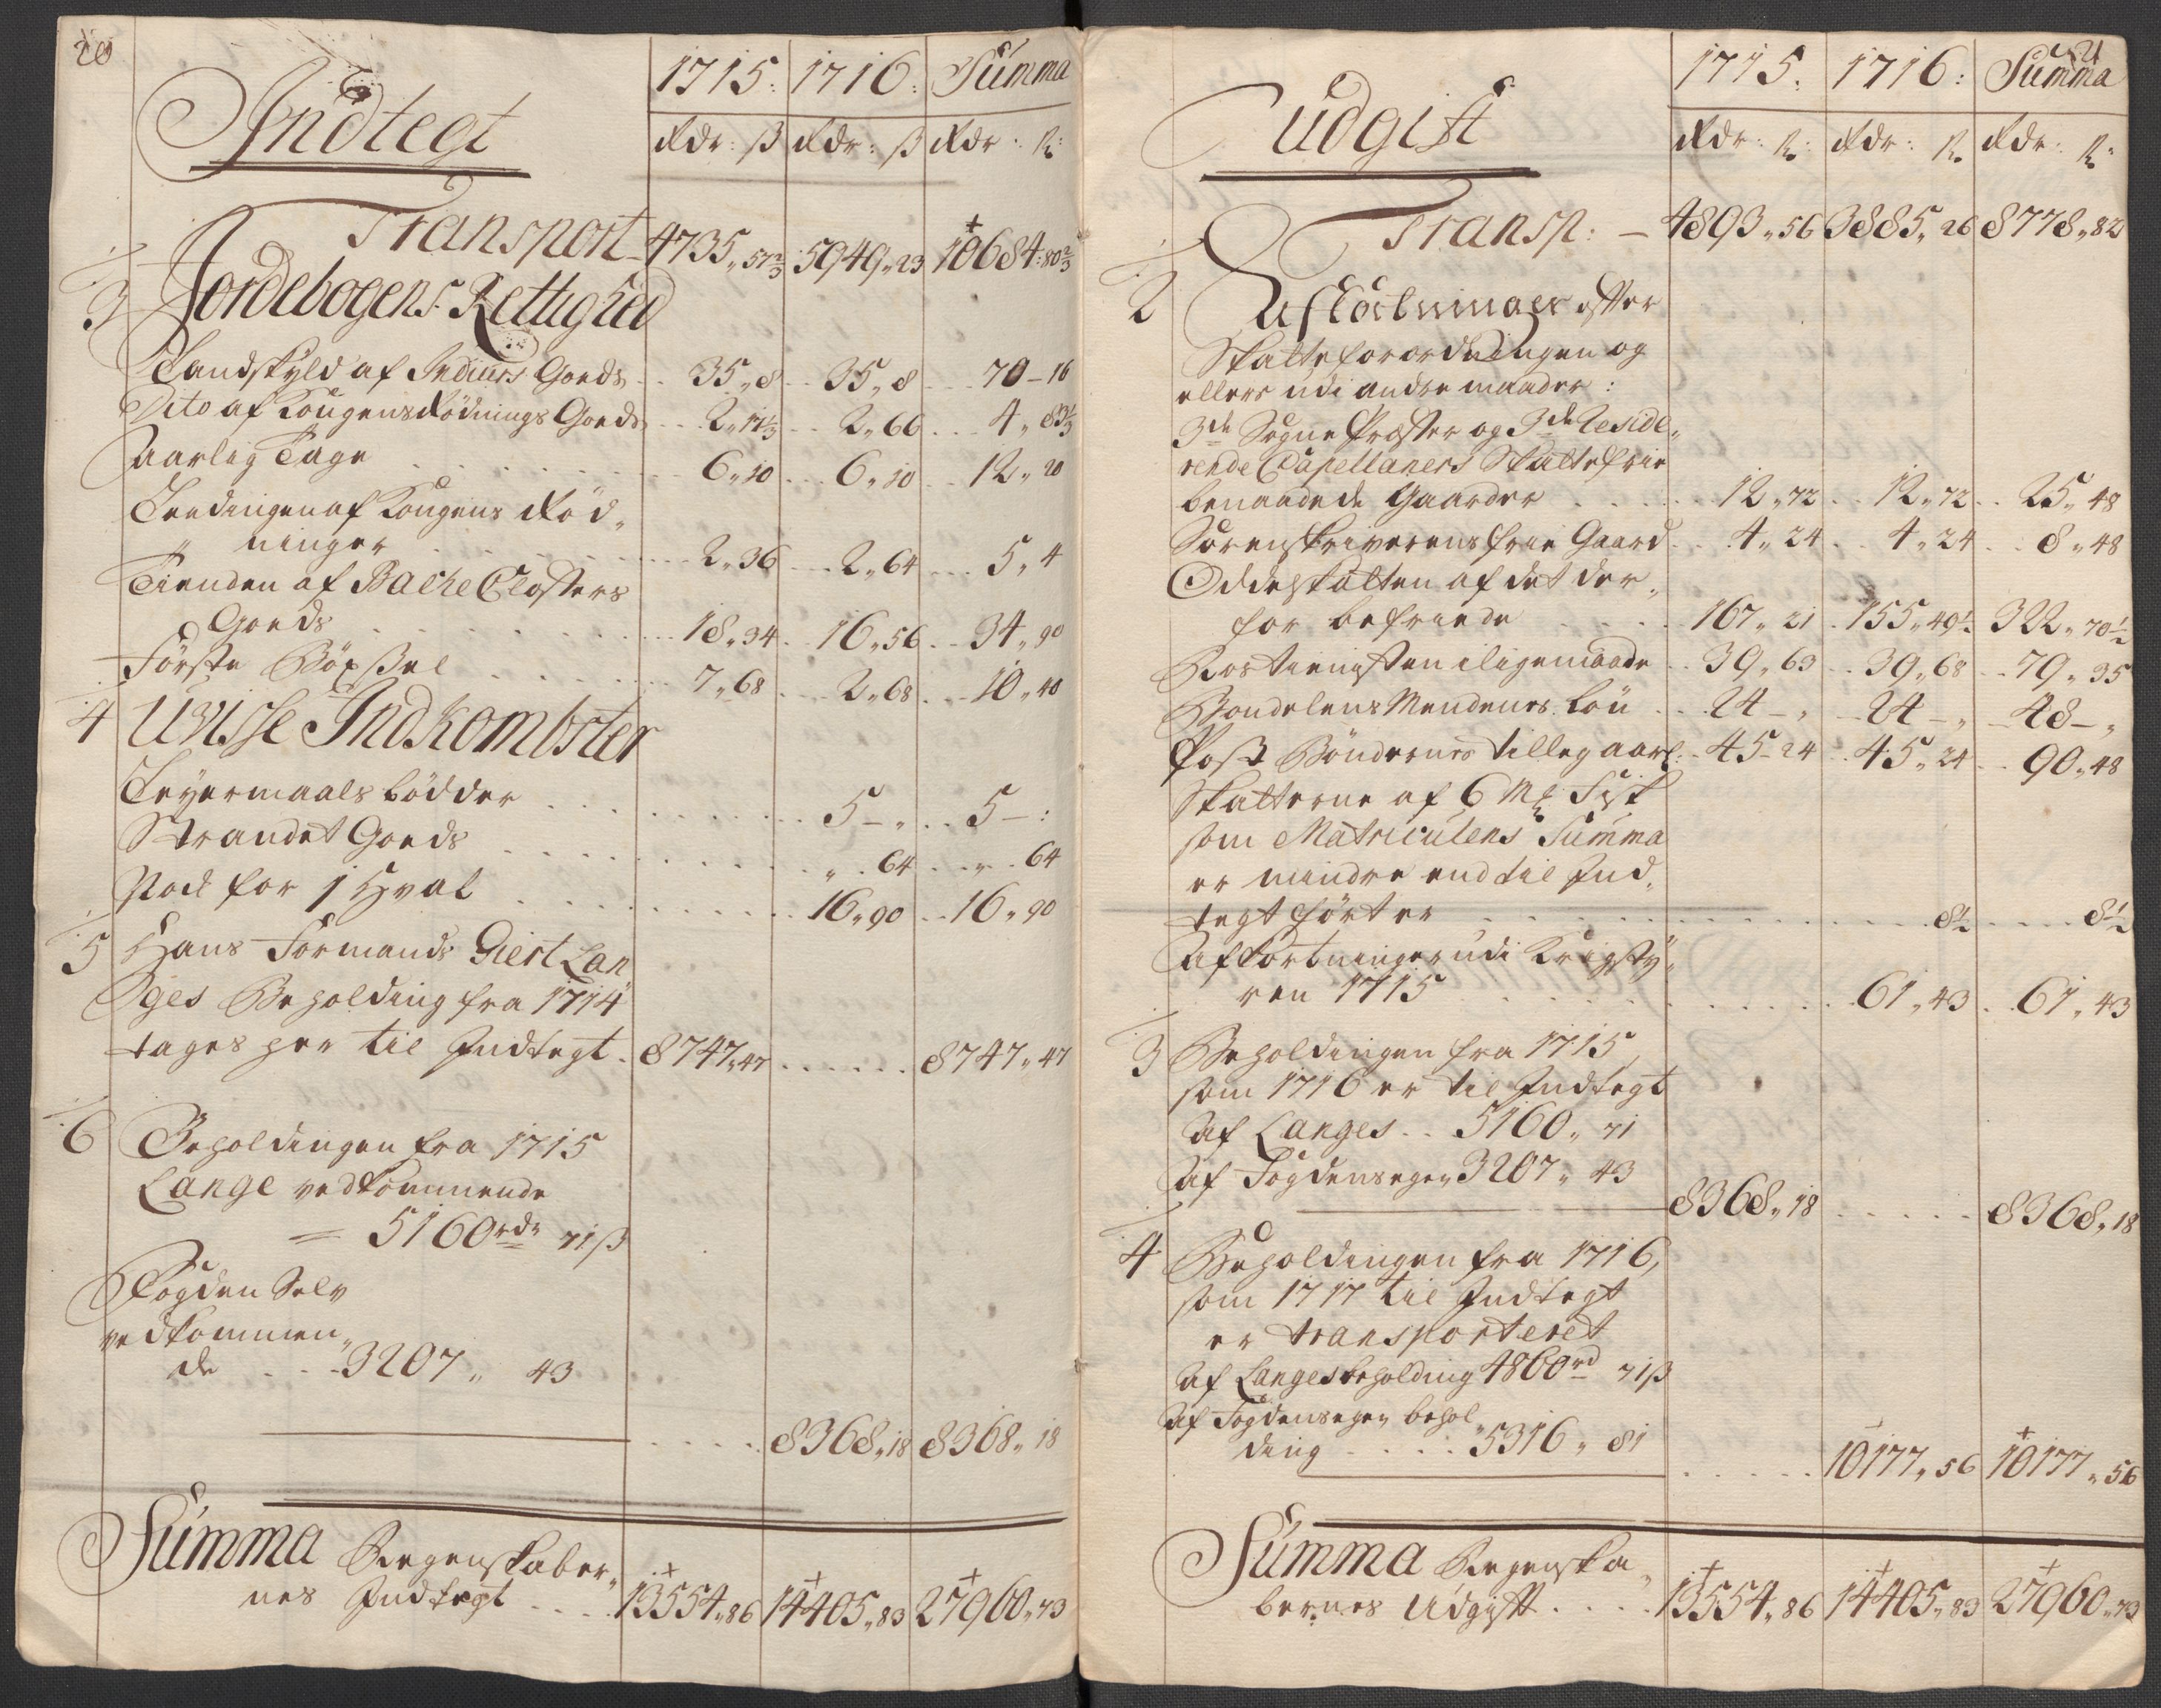 20
Indtegt
1715: 1716: Summa
Rdr: ß Rdr: ß Rdr: ß:
Transport 4735„57⅔ 5949„23 10684:80⅔
3 Jordebogens Rettighed
Landskyld af Goeds 35„8 35„8 70-16
Dito af Kongens Rödnings Goeds 2„17⅓ 2„66 4„83⅓
Aarlig Tage 6„10 6„10 12„20
Leedingen af Kongens Röd„
ninger 2„36 2„64 5„4
Tienden af Bache Closters
Goeds 18„34 16„56 34„90
Förste Böxsel 7„68 2„68 10„40
4 Uvisse Indkombster
Leyermaals bödder 5-„ 5-:
Strandet Goeds „64 „64
for 1 Hval 16„90 16„90
5 Hans Formands Giert Lan
ges Beholding fra 1714
tages her til Indtegt 8747„47 8747„47
6 Beholdingen fra 1715
Lange vedkommende
= 5160rdr 71ß
Fogden Selv
vedkommen„
de 3207„ 43
8368„18 8368„18
Summa Regenskaber„
nes Indtegt 13554„86 14405„83 27960„73
21
Udgift
1715. 1716: Summa
Rdr: ß: Rdr: ß Rdr: ß:
Transp: 4893„56 3885„26 8778„82
2 Afkortninger efter
Skatteforordningen og
ellers udi andre maader:
3de Sogne Præster og 3de Reside„
rende Capellaners Skattefrie
benaadede Gaarder 12„72 12„72 25„48
Sorenskriverens frie Gaard 4„24 4„24 8„48
Oddelskatten af det der„
for befriede 167„21 155„49½ 322„70½
Rostienisten iligemaade 39„63 39„68 79„35
Bondelensmendenes Lön 24-„ 24-„ 48-„
Post Böndernes tilleg aarl: 45-24 45„24 90„48
Skatterne af 6 Mk Fisk
som Matriculens Summa
er mindre end til Ind„
tegt fört er 8½ 8½
Afkortninger udi Krigsty„
ren 1715 61„43 61„43
3 Beholdingen fra 1715
som 1716 er til Indtegt
Af Langes 5160„71
Af Fogdens egen 3207„43
8368„18 8368„18
4 Beholdingen fra 1716,
som 1717 til Indtegt
er transporteret
Af Langes beholding 4860rd 71ß
Af Fogdens egen behol
ding 5316„81
10177„56 10177„56
Summa Regenska„
bernes Udgift 13554„86 14405„83 27960„73